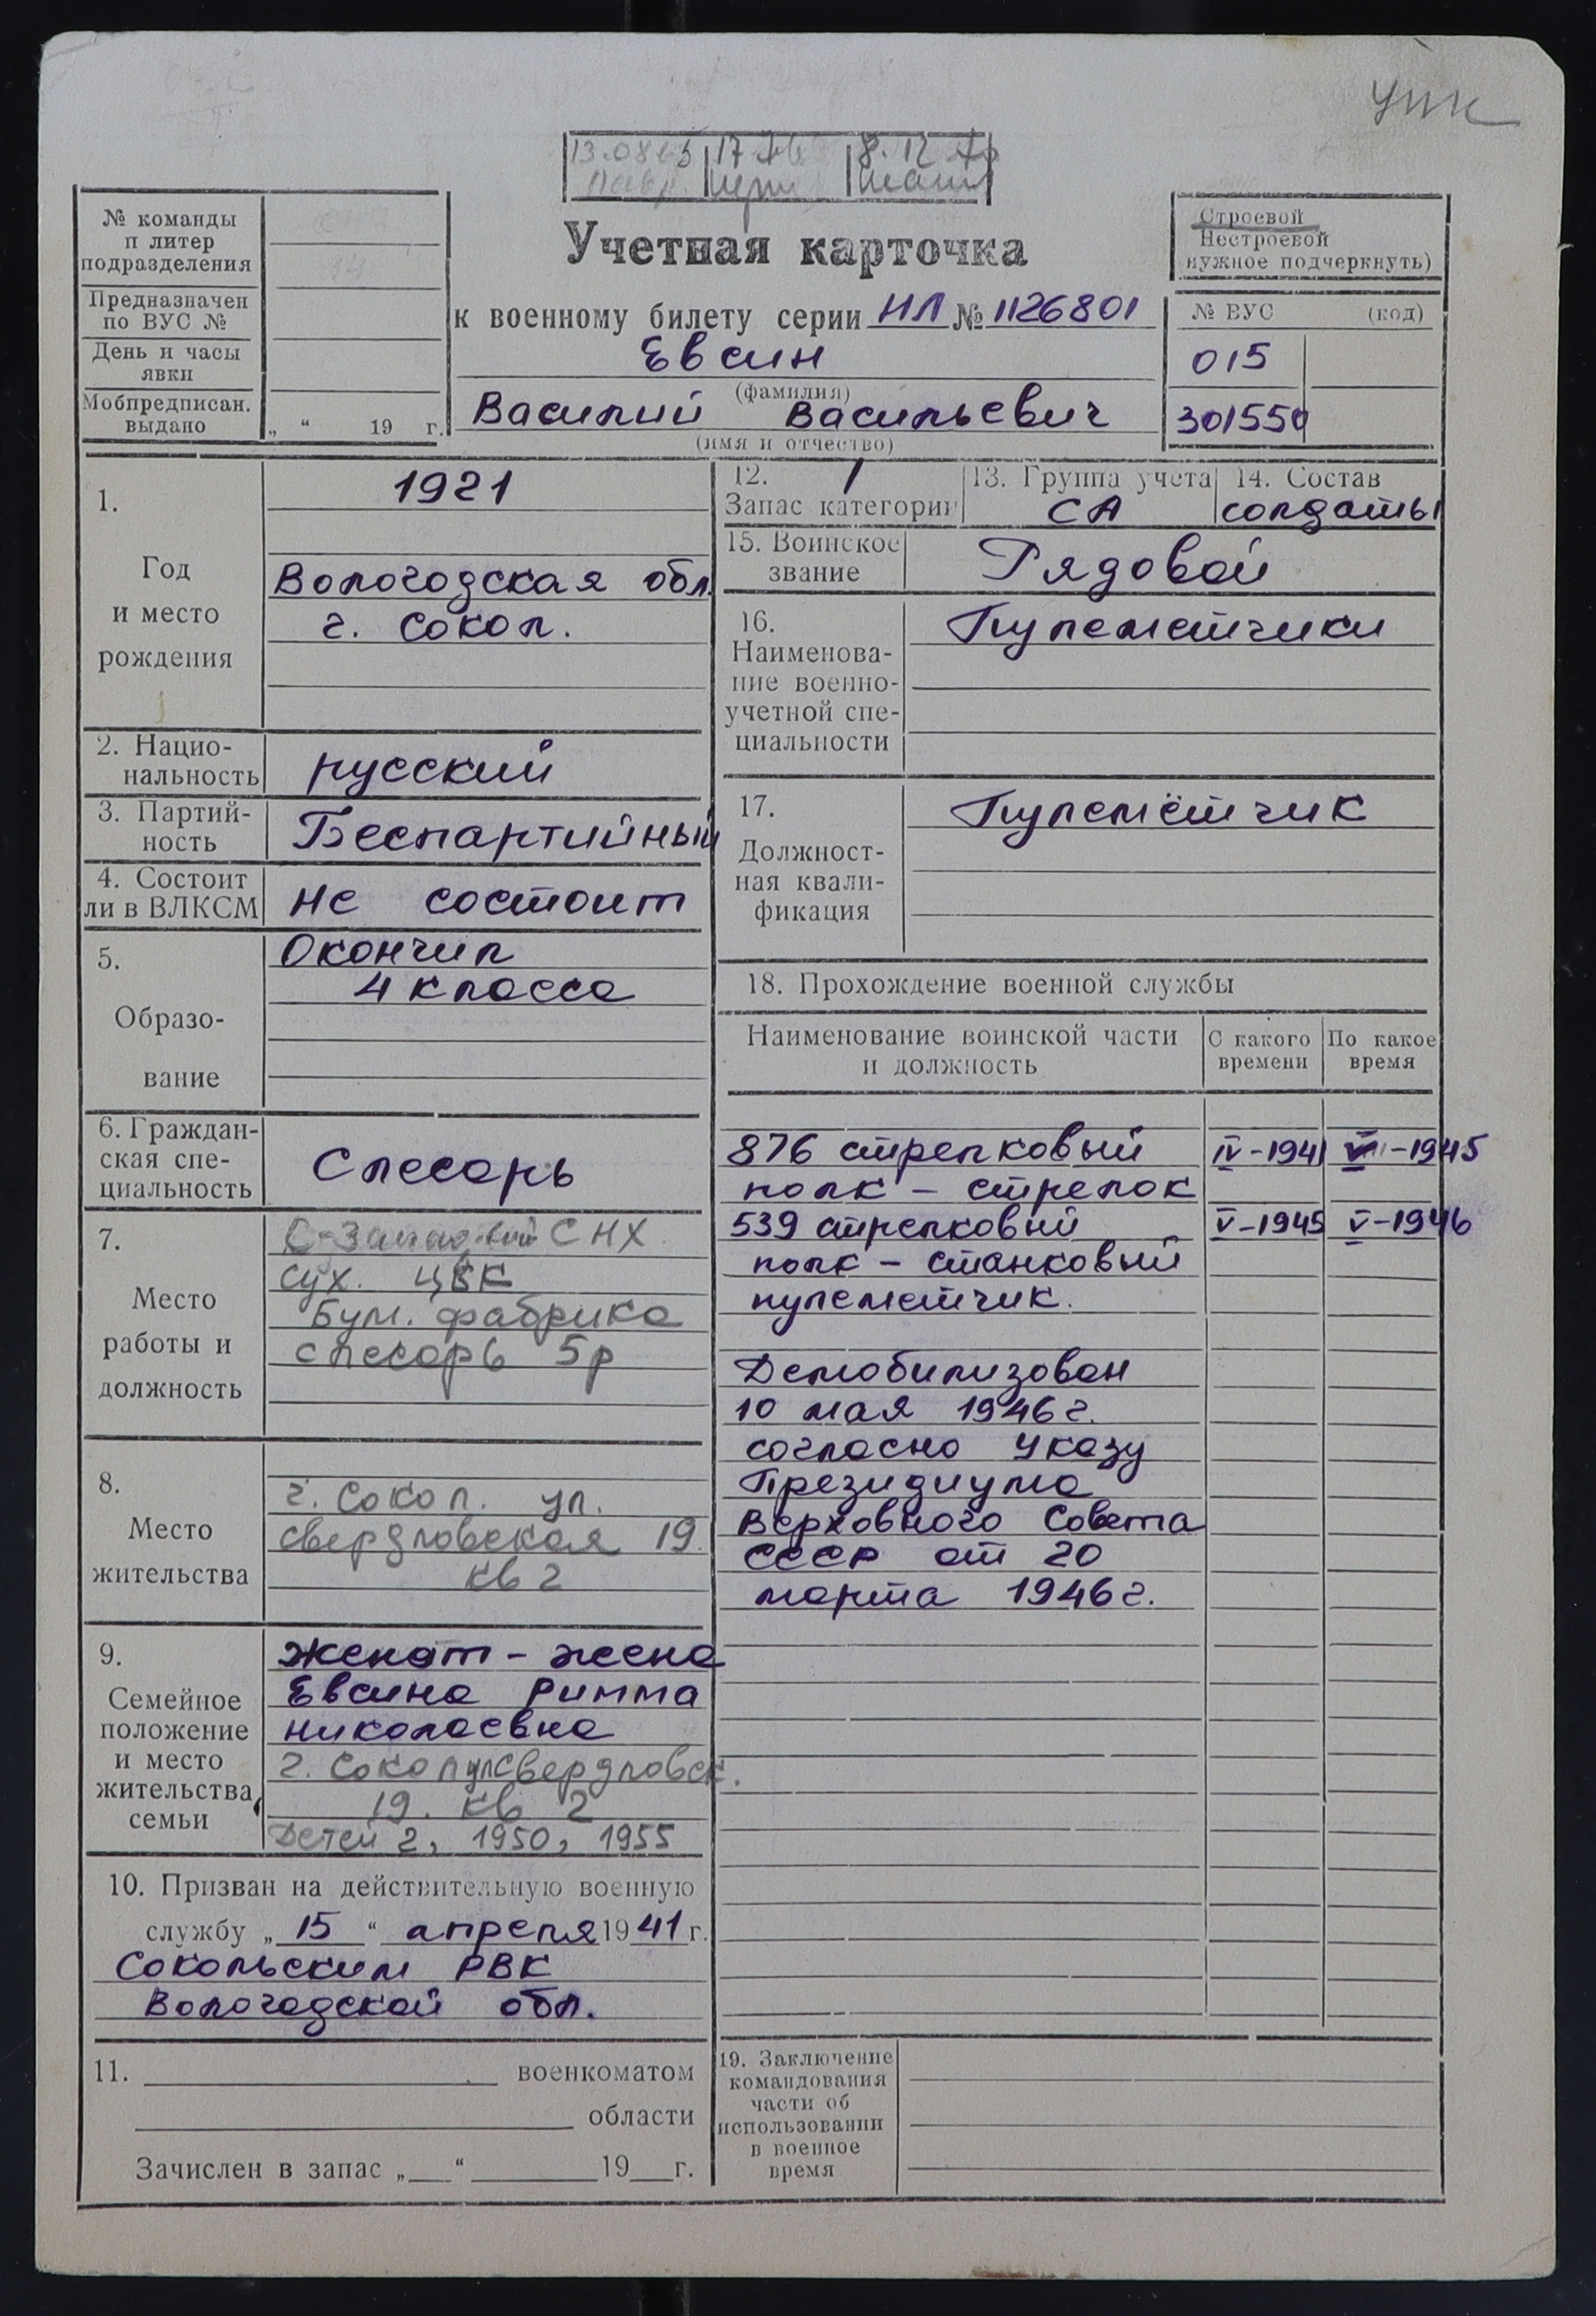 УПК
13.08 65 17 8. 12
№ команды
п литер
подразделения
Предназначен
по ВУС №
День и часы
явки
Мобпредписан.
выдано
„ “ 19 г.
Учетная карточка
к военному билету серии НЛ № 1126801
Евсин
(фамилия)
Василий Васильевич
(имя и отчество)
Строевой
Нестроевой
нужное подчеркнуть)
№ ВУС (код)
015
301550
1.
Год
и место
рождения
1921
Вологодская обл.
г. Сокол.
2. Нацио-
нальность
русский
3. Партий-
ность
Беспартийный
4. Состоит
ли в ВЛКСМ
Не состоит
5.
Образо-
вание
Окончил
4 класса
6. Граждан-
ская спе-
циальность
Слесарь
7.
Место
работы и
должность
СНХ
Сух. ЦБК
Бум. фабрика
слесарь 5р
8.
Место
жительства
г. Сокол. ул.
Свердловская 19.
кв 2
9.
Семейное
положение
и место
жительства
семьи
Женат - жена
Евсина Римма
Николаевна
г. Сокол ул Свердловск.
19. кв 2
Детей 2, 1950, 1955
10. Призван на действительную военную
службу „ 15 “ апреля 1941 г.
Сокольским РВК
Вологодской обл.
11. военкоматом
области
Зачислен в запас „ “ 19 г.
12. 1
Запас категории
13. Группа учета
СА
14. Состав
солдаты
15. Воинское
звание
Рядовой
16.
Наименова-
ние военно-
учетной спе-
циальности
Пулеметчики
17.
Должност-
ная квали-
фикация
Пулемётчик
18. Прохождение военной службы
Наименование воинской части
и должность
С какого
времени
По какое
время
876 стрелковый IV-1941 -1945
полк - стрелок
539 стрелковый V-1945 V-1946
полк - станковый
пулеметчик.
Демобилизован
10 мая 1946 г.
согласно Указу
Президиума
Верховного Совета
СССР от 20
марта 1946 г.
19. Заключение
командования
части об
использовании
в военное
время